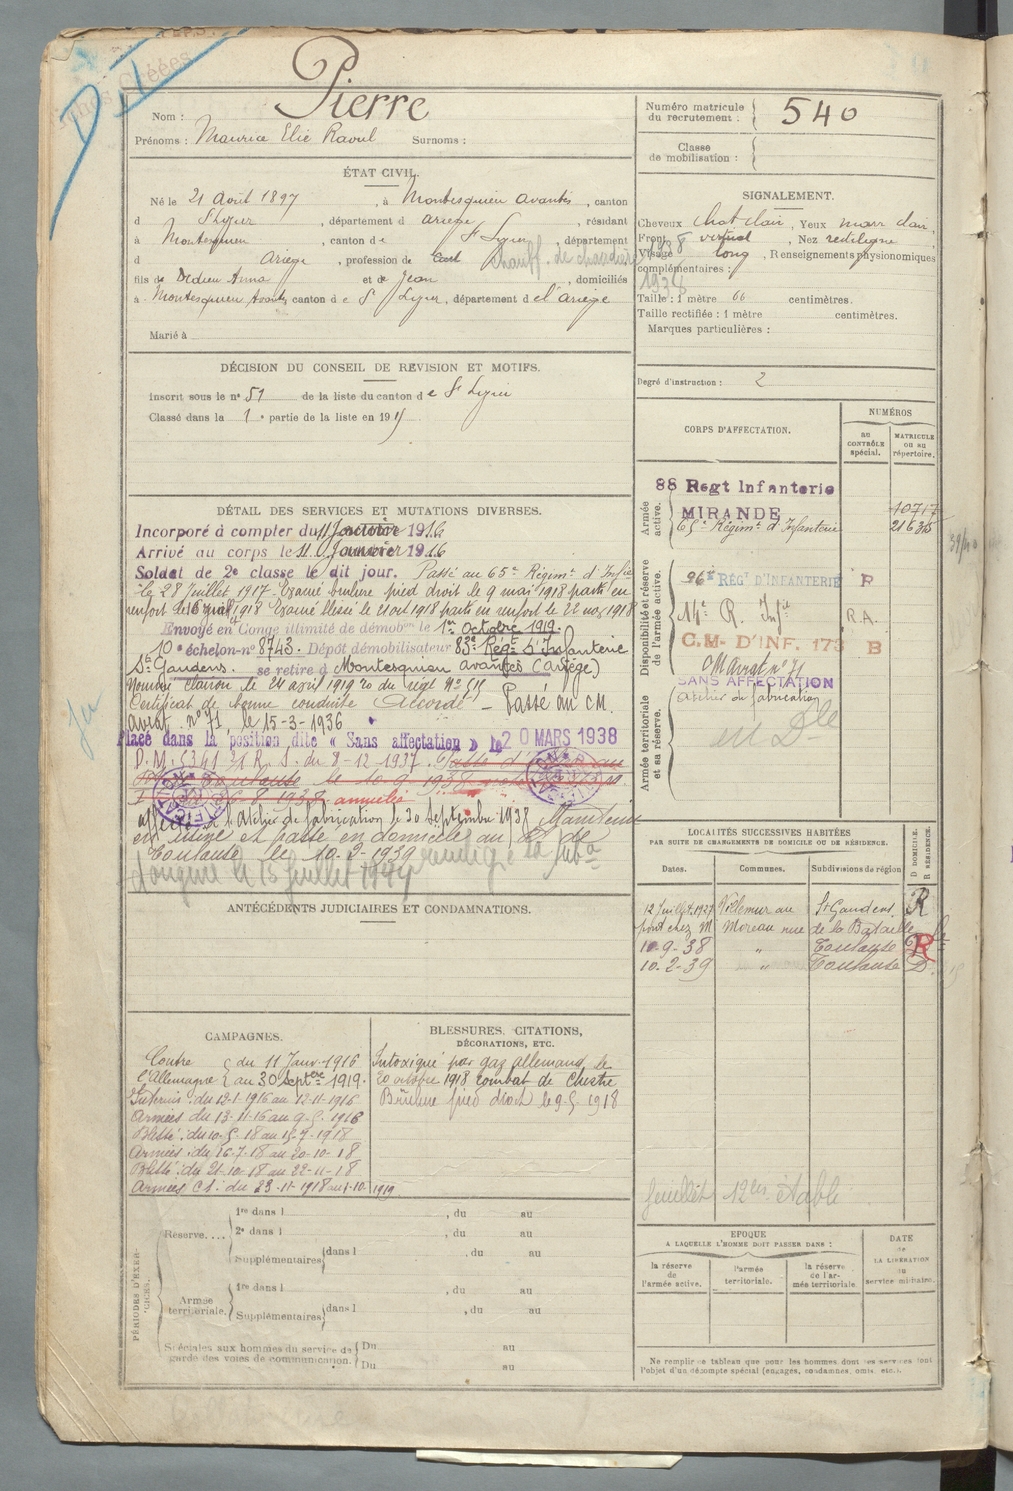 Nom : Pierre
Prénoms : Maurice Elie Raoul Surnoms :
Numéro matricule du recrutement : 540
Classe de mobilisation :
ÉTAT CIVIL.
Né le 21 Août 1897, à Montesquieu Avantès, canton
d St Lizier, département d Ariège, résidant
à Montesquieu, canton de St Lizier, département
d Ariège, profession de Cult chauff. de chaudière 1938
fils de Dedieu Anna et de Jean, domiciliés
à Montesquieu Avantès canton de St Lizier, département de l'ariège
Marié à
SIGNALEMENT.
Cheveux chat clair, Yeux marr clair,
Front vertical, Nez rectiligne
Visage long, Renseignements physionomiques
complémentaires :
1938
Taille : 1 mètre 66 centimètres.
Taille rectifiée : 1 mètre centimètres.
Marques particulières :
Degré d'instruction : 2
DÉCISION DU CONSEIL DE REVISION ET MOTIFS.
Inscrit sous le n° 51 de la liste du canton de St Lizier
Classé dans la 1e partie de la liste en 191
CORPS D'AFFECTATION.
NUMÉROS
AU CONTRÔLE spécial.
MATRICULE ou au répertoire.
Armée active.
88 Regt Infanterie
MIRANDE 10717
65e Régimt d'Infanterie
Disponibilité et réserve de l'armée active.
96e RÉGt D'INFANTERIE R
14e R. Infie R A.
C.M. D'INF. 173 B
CM avrat n° 71
SANS AFFECTATION
Armée territoriale et sa réserve.
atelier de fabrication
en Dle
DÉTAIL DES SERVICES ET MUTATIONS DIVERSES.
Incorporé à compter du 11 Janvier 1916
Arrivé au corps le 11 Janvier 1916
Soldat de 2e classe le dit jour. Passé au 65e Régimt d'Infie
le 28 Juillet 1917. Evacué brulure pied droit le 9 mai 1918 parti en
renfort le 16 1918 Evacué blessé le 21 oct 1918 parti en renfort le 22 nov 1918
Envoyé en Congé illimité de démobon le 1er Octobre 1919.
10e échelon-n° 8743. Dépôt démobilisateur 83e Régt d'Infanterie
St Gaudens. se retire à Montesquieu avantès (Ariège)
Nommé clairon le 24 avril 1919
Certificat de bonne conduite Accordé - Passé au CM.
avrat n° 71, le 15-3-1936
Placé dans la position dite « Sans affectation » le 20 MARS 1938
D. M. 5341 R. S. du 8-12-1937.
Toulouse le 10-9-1938
26-8-1938 annulée
l'Atelier de fabrication le 30 Septembre 1938 Maintenu
en usine et passé en domicile au de
Toulouse le 10-2-1939
le 15 juillet
ANTÉCÉDENTS JUDICIAIRES ET CONDAMNATIONS.
LOCALITÉS SUCCESSIVES HABITÉES
PAR SUITE DE CHANGEMENTS DE DOMICILE OU DE RÉSIDENCE.
D DOMICILE. R RÉSIDENCE.
Dates. Communes. Subdivisions de région
12 Juillet 1927 Villemur au St Gaudens R
chez M Moreau rue de la Bataille
10-9-38 " Toulouse R
10-2-39 " Toulouse D
CAMPAGNES.
Contre l'Allemagne du 11 Janv-1916
au 30 Septbre 1919.
Intérieur : du 12-1-1916 au 12-11-1916
Armées du 13-11-16 au 9-5-1918
Blessé : du 10-5-18 au 15-7-1918
Armées : du 16-7-18 au 20-10-18
Blessé : du 21-10-18 au 22-11-18
Armées C1 : du 23-11-1918 au 1-10. 1919
BLESSURES, CITATIONS, DÉCORATIONS, ETC.
Intoxiqué par gaz allemand le
20 octobre 1918 combat de Chestre
Brulure pied droit le 9-5-1918
PÉRIODES D'EXERCICES.
Réserve....
1re dans l , du au
2e dans l , du au
Supplémentaires dans l , du au
Armée territoriale.
1re dans l , du au
Supplémentaires dans l , du au
Spéciales aux hommes du service de garde des voies de communication.
Du au
Du au
Juillet
EPOQUE
A LAQUELLE L'HOMME DOIT PASSER DANS :
la réserve de l'armée active.
l'armée territoriale.
la réserve de l'armée territoriale.
DATE DE LA LIBÉRATION du service militaire.
Ne remplir ce tableau que pour les hommes dont les services font
l'objet d'un décompte spécial (engagés, condamnés, omis, etc.).